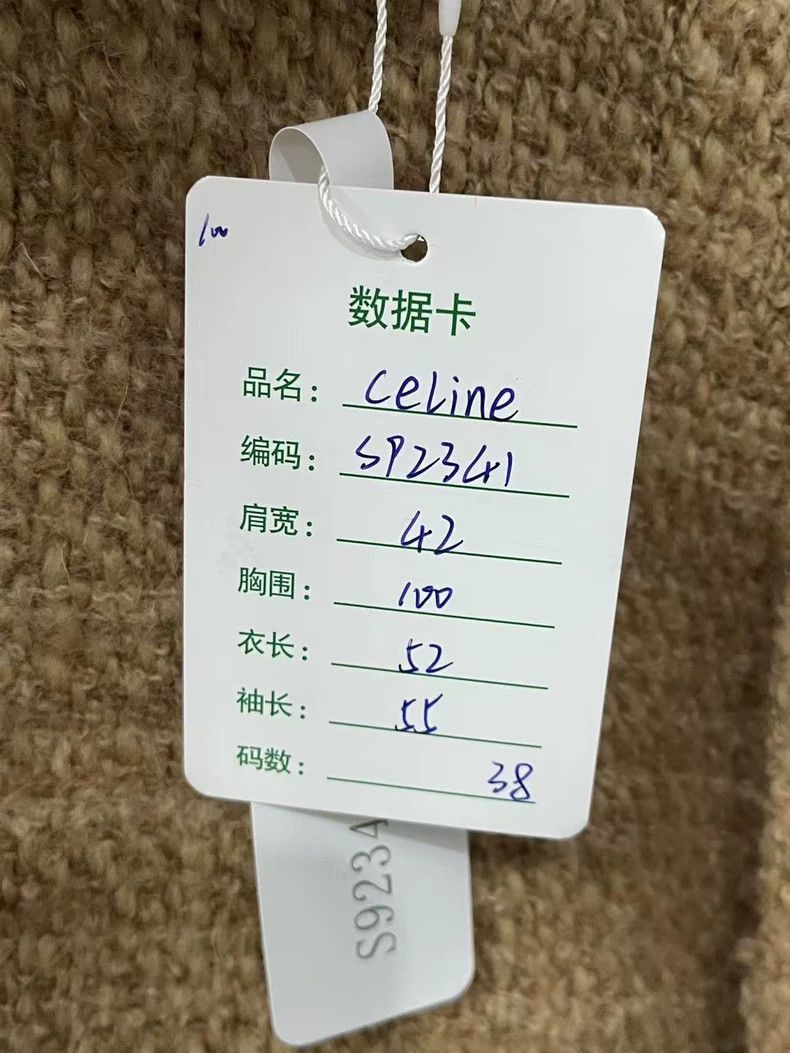 100
数据卡
品名：celine
编码：S92341
肩宽：42
胸围：100
衣长：52
袖长：55
码数：38
S9234